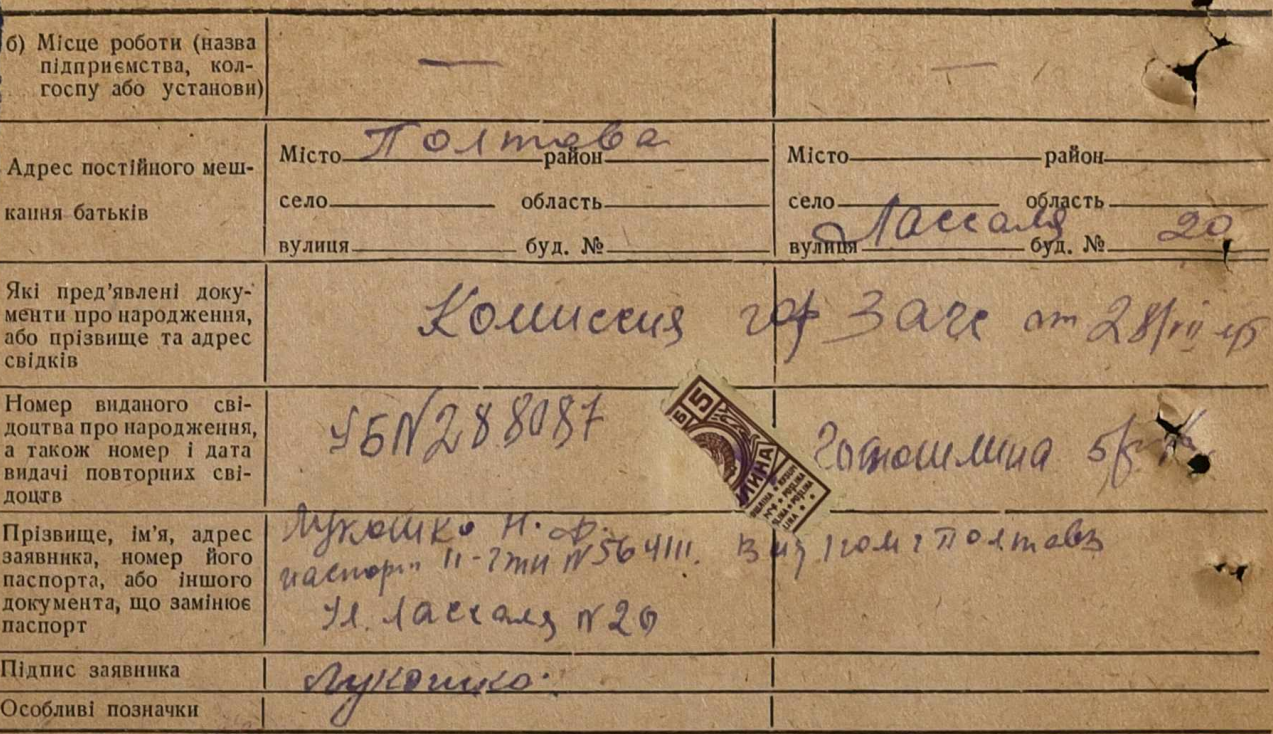 б) Місце роботи (назва
підприємства, кол-
госпу або установи)
— —
Адрес постійного меш-
кання батьків
Місто Полтава район Місто район
село область село область
вулиця буд. № вулиця Лассаля буд. № 20
Які пред'явлені доку-
менти про народження,
або прізвище та адрес
свідків
Комиссия гор Загс от 28/VII
Номер виданого сві-
доцтва про народження,
а також номер і дата
видачі повторних сві-
доцтв
УБ N 288087
5
Прізвище, ім'я, адрес
заявника, номер його
паспорта, або іншого
документа, що замінює
паспорт
Лукошко Н. Ф.
паспорт N 564111. Выд. 1 гом г Полтава
Ул. Лассаля N 20
Підпис заявника Лукошко
Особливі позначки